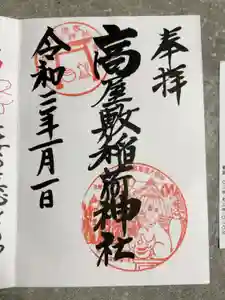 奉拝
高屋敷稲荷神社
令和三年一月一日